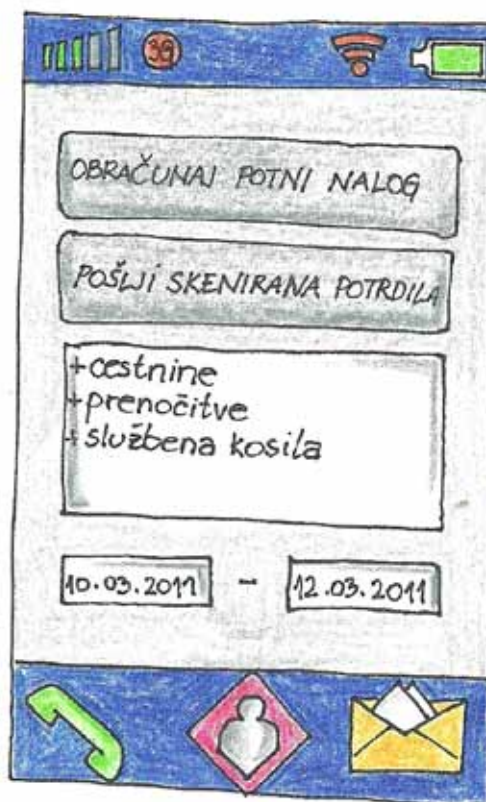 3G
OBRAČUNAJ POTNI NALOG
POŠLJI SKENIRANA POTRDILA
+cestnine
+prenočitve
+službena kosila
10.03.2011 - 12.03.2011